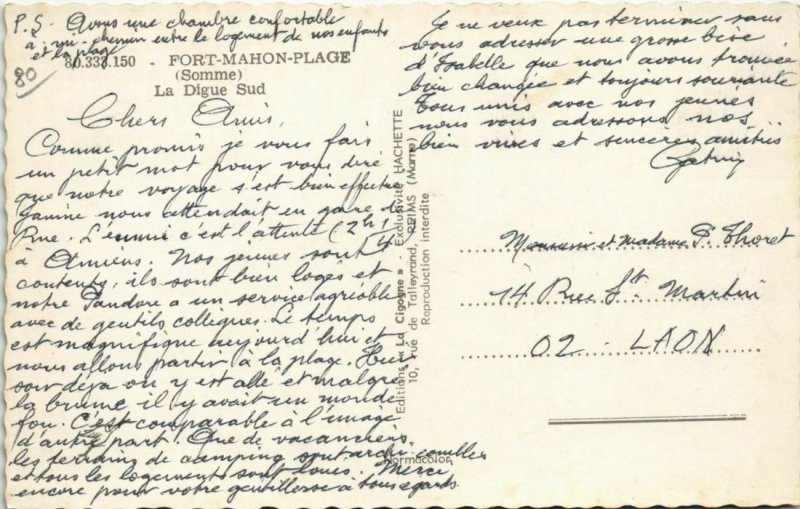 P.S. Avons une chambre confortable
à mi-chemin entre le logement de nos enfants
et la plage
80
80.333.150 - FORT-MAHON-PLAGE
(Somme)
La Digue Sud
Chers Amis,
Comme promis je vous fais
un petit mot pour vous dire
que notre voyage s'est bien effectué
Janine nous attendait en gare de
Rue. L'ennui c'est l'attente (2h 1/4)
à Amiens. Nos jeunes sont
contents, ils sont bien logés et
notre Pandore a un service agréable
avec de gentils collègues. Le temps
est magnifique aujourd'hui et
nous allons partir à la plage. Hier
soir déjà on y est allé et malgré
la brume il y avait un monde
fou. C'est comparable à l'image
d'autre part. Que de vacanciers,
les terrains de camping sont archi-combles
et tous les logements sont loués. Merci
encore pour votre gentillesse à tous égards.
Je ne veux pas terminer sans
vous adresser une grosse bise
d'Isabelle que nous avons trouvée
bien changée et toujours souriante
Tous unis avec nos jeunes
nous vous adressons nos
bien vives et sincères amitiés
Editions « La Cigogne » - Exclusivité HACHETTE
10, rue de Talleyrand, REIMS (Marne)
Reproduction interdite
Normacolor
Monsieur et Madame P. Thoret
14 Rue St Martin
02 - LAON